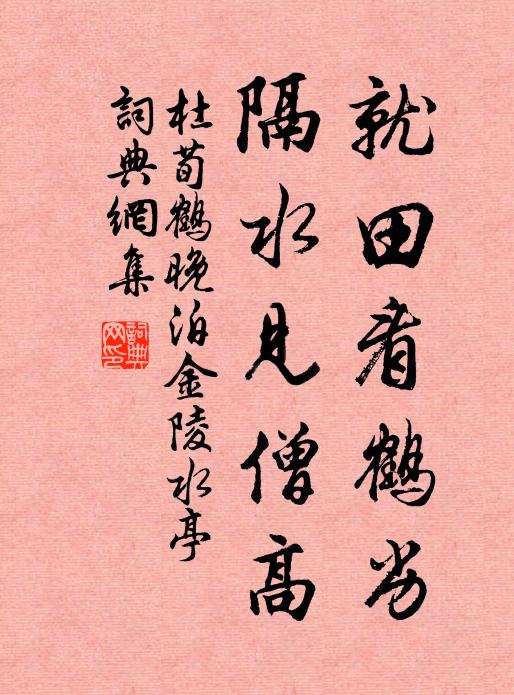 就田看鶴劣
隔水見僧高
杜荀鶴晚泊金陵水亭
詞典網集
詞典
网印